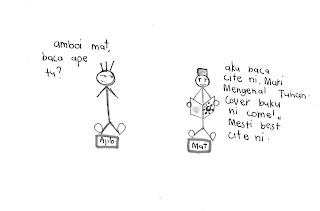 amboi mat,
baca ape
tu?
aku baca
cite ni. Mari
Mengenal Tuhan.
Cover buku
ni comel.
Mesti best
cite ni.
Ajib
Mat